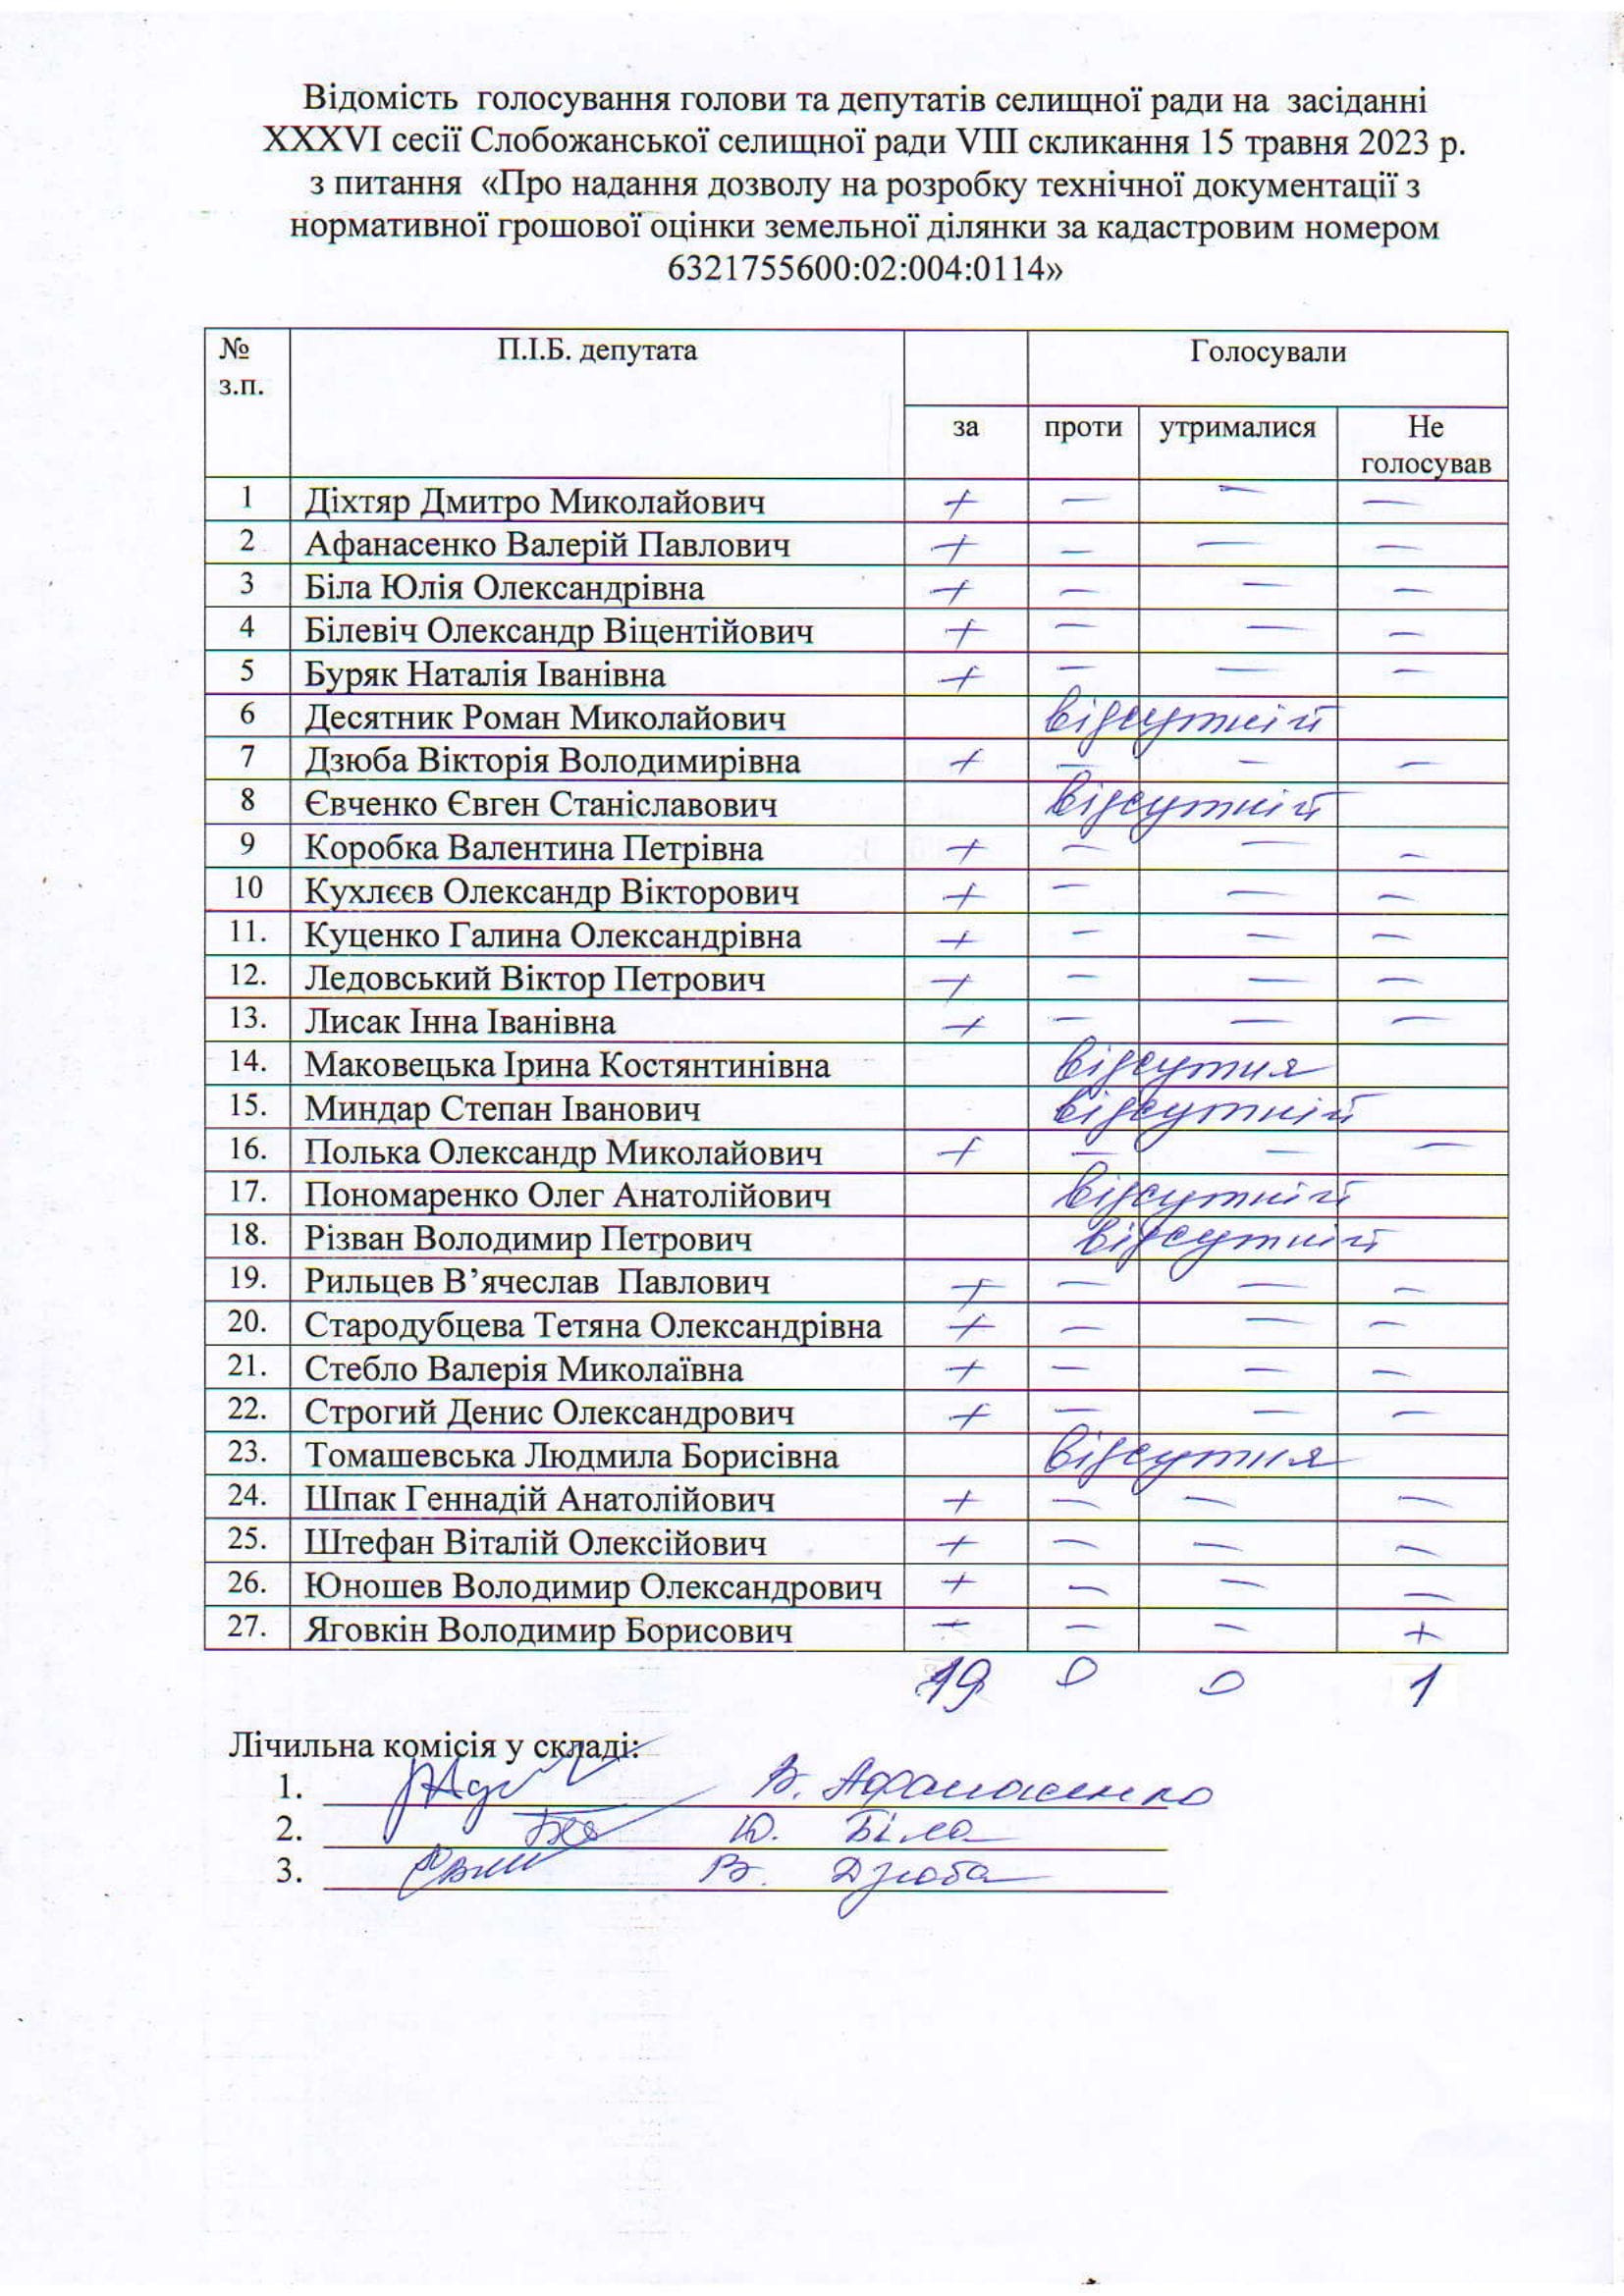 Відомість голосування голови та депутатів селищної ради на засіданні
XXXVI сесії Слобожанської селищної ради VIII скликання 15 травня 2023 р.
з питання «Про надання дозволу на розробку технічної документації з
нормативної грошової оцінки земельної ділянки за кадастровим номером
6321755600:02:004:0114»
№ з.п. П.І.Б. депутата Голосували
за проти утрималися Не голосував
1 Діхтяр Дмитро Миколайович + — — —
2 Афанасенко Валерій Павлович + — — —
3 Біла Юлія Олександрівна + — — —
4 Білевіч Олександр Віцентійович + — — —
5 Буряк Наталія Іванівна + — — —
6 Десятник Роман Миколайович відсутній
7 Дзюба Вікторія Володимирівна + — — —
8 Євченко Євген Станіславович відсутній
9 Коробка Валентина Петрівна + — — —
10 Кухлєєв Олександр Вікторович + — — —
11. Куценко Галина Олександрівна + — — —
12. Ледовський Віктор Петрович + — — —
13. Лисак Інна Іванівна + — — —
14. Маковецька Ірина Костянтинівна відсутня
15. Миндар Степан Іванович відсутній
16. Полька Олександр Миколайович + — — —
17. Пономаренко Олег Анатолійович відсутній
18. Різван Володимир Петрович відсутній
19. Рильцев В’ячеслав Павлович + — — —
20. Стародубцева Тетяна Олександрівна + — — —
21. Стебло Валерія Миколаївна + — — —
22. Строгий Денис Олександрович + — — —
23. Томашевська Людмила Борисівна відсутня
24. Шпак Геннадій Анатолійович + — — —
25. Штефан Віталій Олексійович + — — —
26. Юношев Володимир Олександрович + — — —
27. Яговкін Володимир Борисович — — — +
19 0 0 1
Лічильна комісія у складі:
1. В. Афанасенко
2. Ю. Біла
3. В. Дзюба